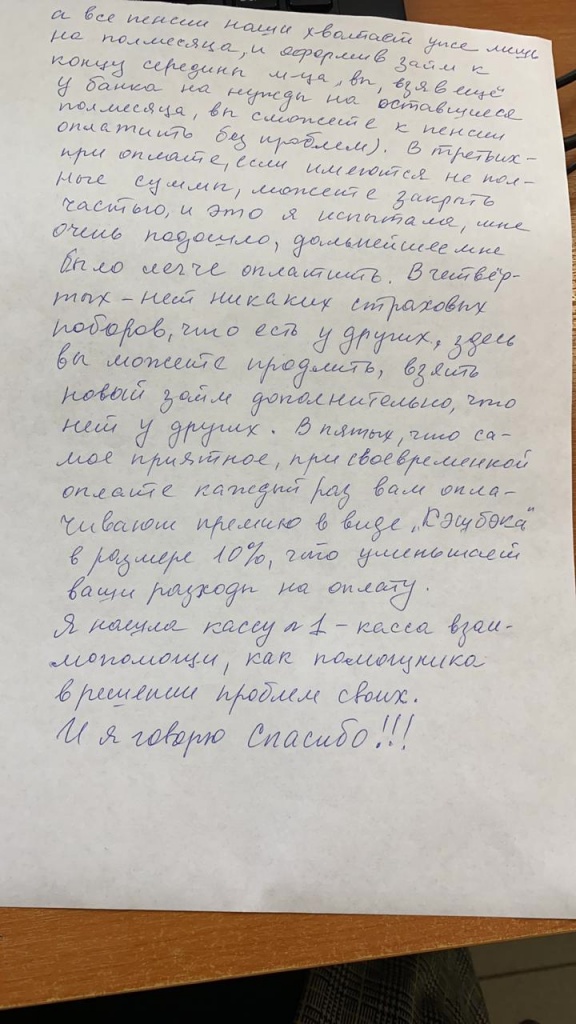 а все пенсии наши хватает уже лишь
на полмесяца, и оформив займ к
концу середины м-ца, вы, взяв ещё
у банка на нужды на оставшиеся
полмесяца, вы сможете к пенсии
оплатить без проблем). В третьих-
при оплате, если имеются не пол-
ные суммы, можете закрыть
частью, и это я испытала, мне
очень подошло, дальнейшее мне
было легче оплатить. В четвёр-
тых - нет никаких страховых
поборов, что есть у других, здесь
вы можете продлить, взять
новый займ дополнительно, что
нет у других. В пятых, что са-
мое приятное, при своевременной
оплате каждый раз вам опла-
чивают премию в виде „Кэшбэка"
в размере 10%, что уменьшает
ваши расходы на оплату.
Я нашла кассу №1 - касса взаи-
мопомощи, как помощника
в решении проблем своих.
И я говорю Спасибо!!!